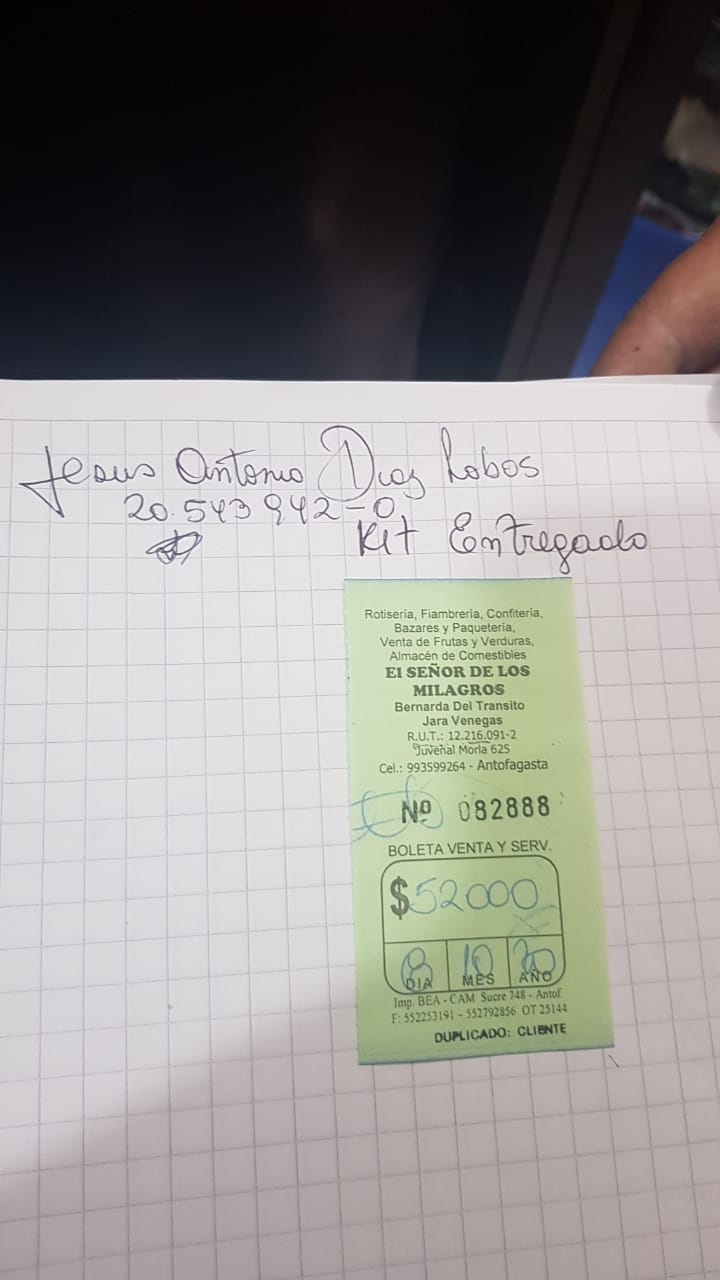 Jesus Antonio Diaz Lobos
20.543942-0
Kit Entregado
Rotiseria, Fiambreria, Confiteria,
Bazares y Paqueteria,
Venta de Frutas y Verduras,
Almacén de Comestibles
El SEÑOR DE LOS
MILAGROS
Bernarda Del Transito
Jara Venegas
R.U.T.: 12.216.091-2
Juvenal Morla 625
Cel.: 993599264 - Antofagasta
Nº 082888
BOLETA VENTA Y SERV.
$52000
8 10 20
DIA MES AÑO
Imp. BEA - CAM Sucre 748 - Antof.
F: 552253191 - 552792856 OT 25144
DUPLICADO: CLIENTE